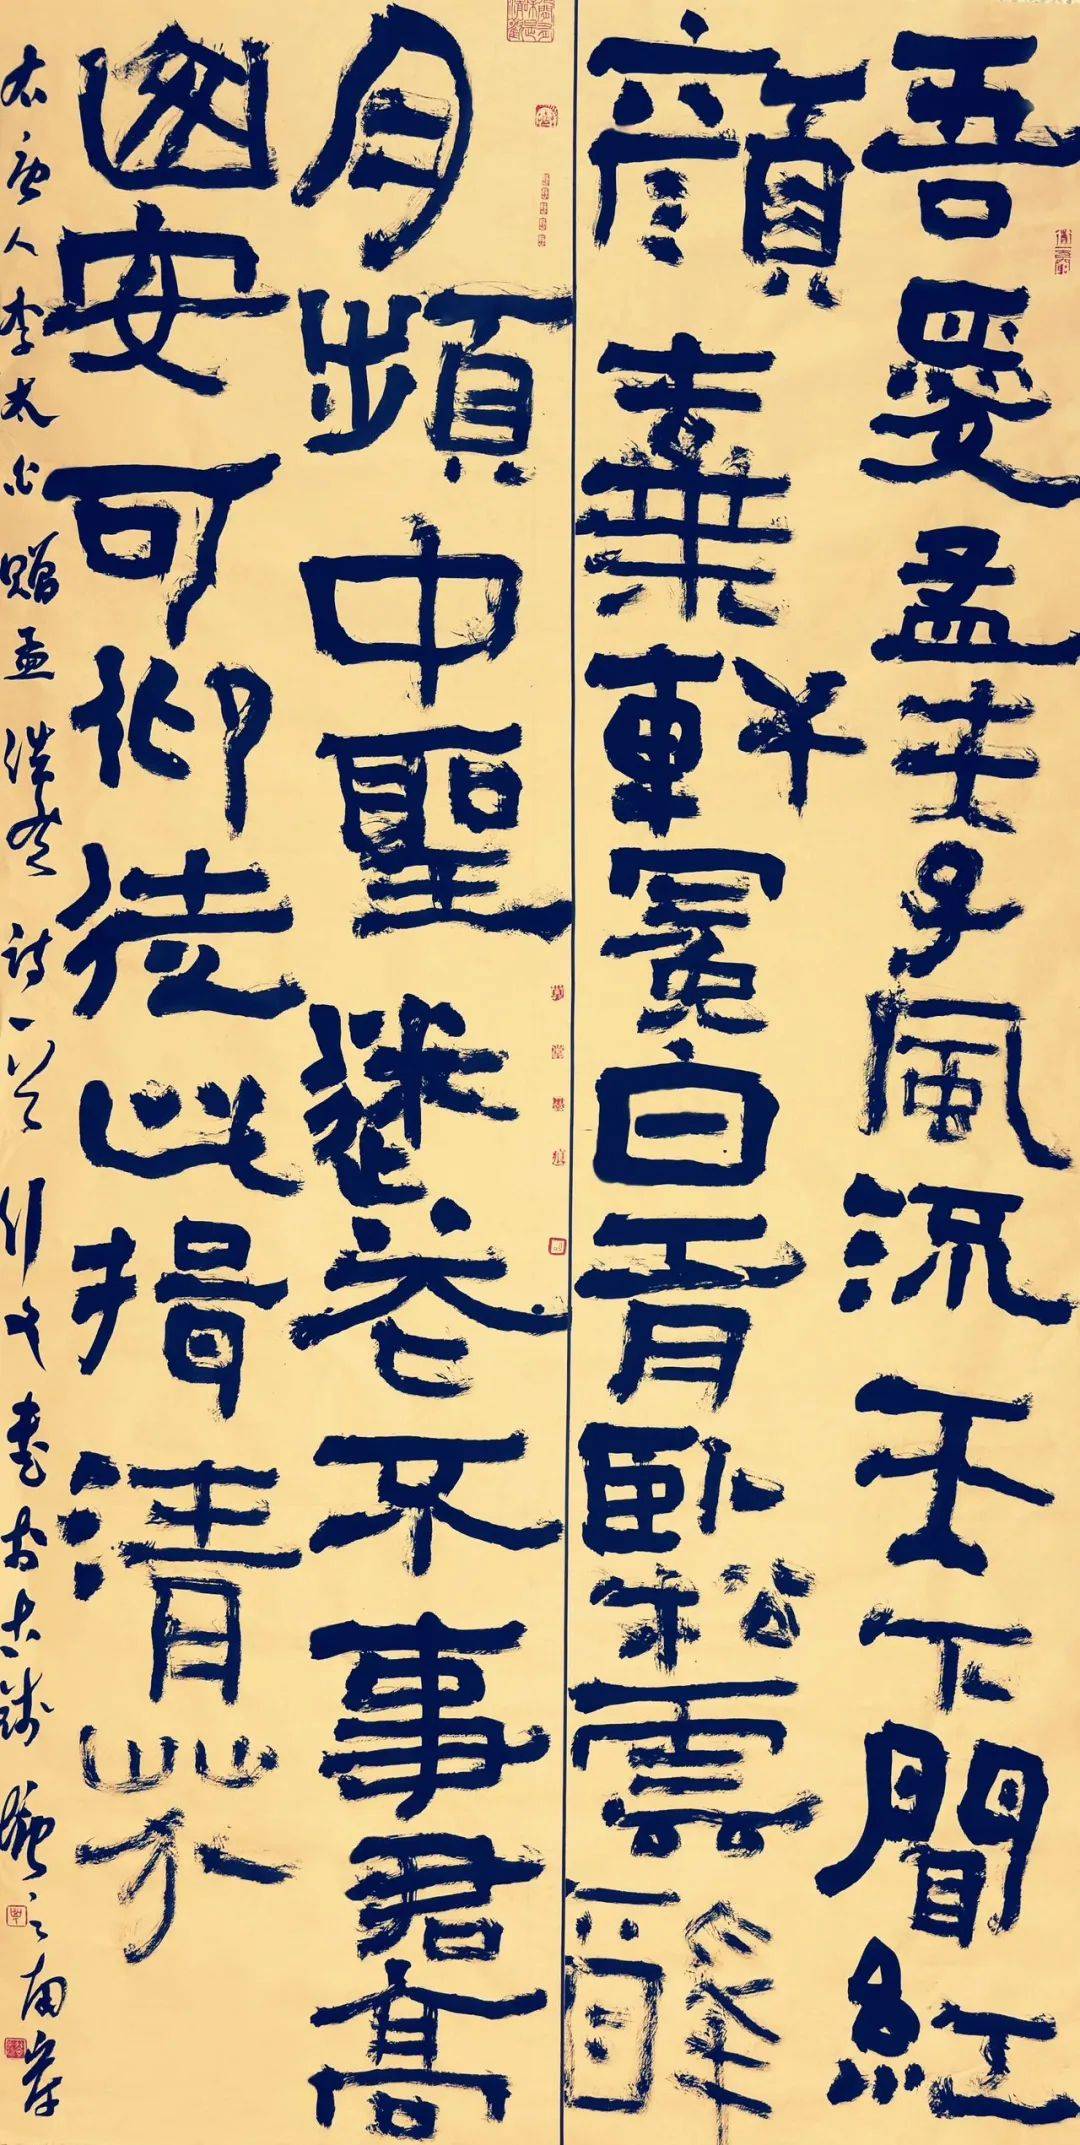 吾愛孟夫子風流天下聞紅
顏棄軒冕白首臥松雲醉
月頻中聖迷花不事君高
山安可仰徒此揖清芬
右唐人李太白贈孟浩然詩一首 書於古 之南岸